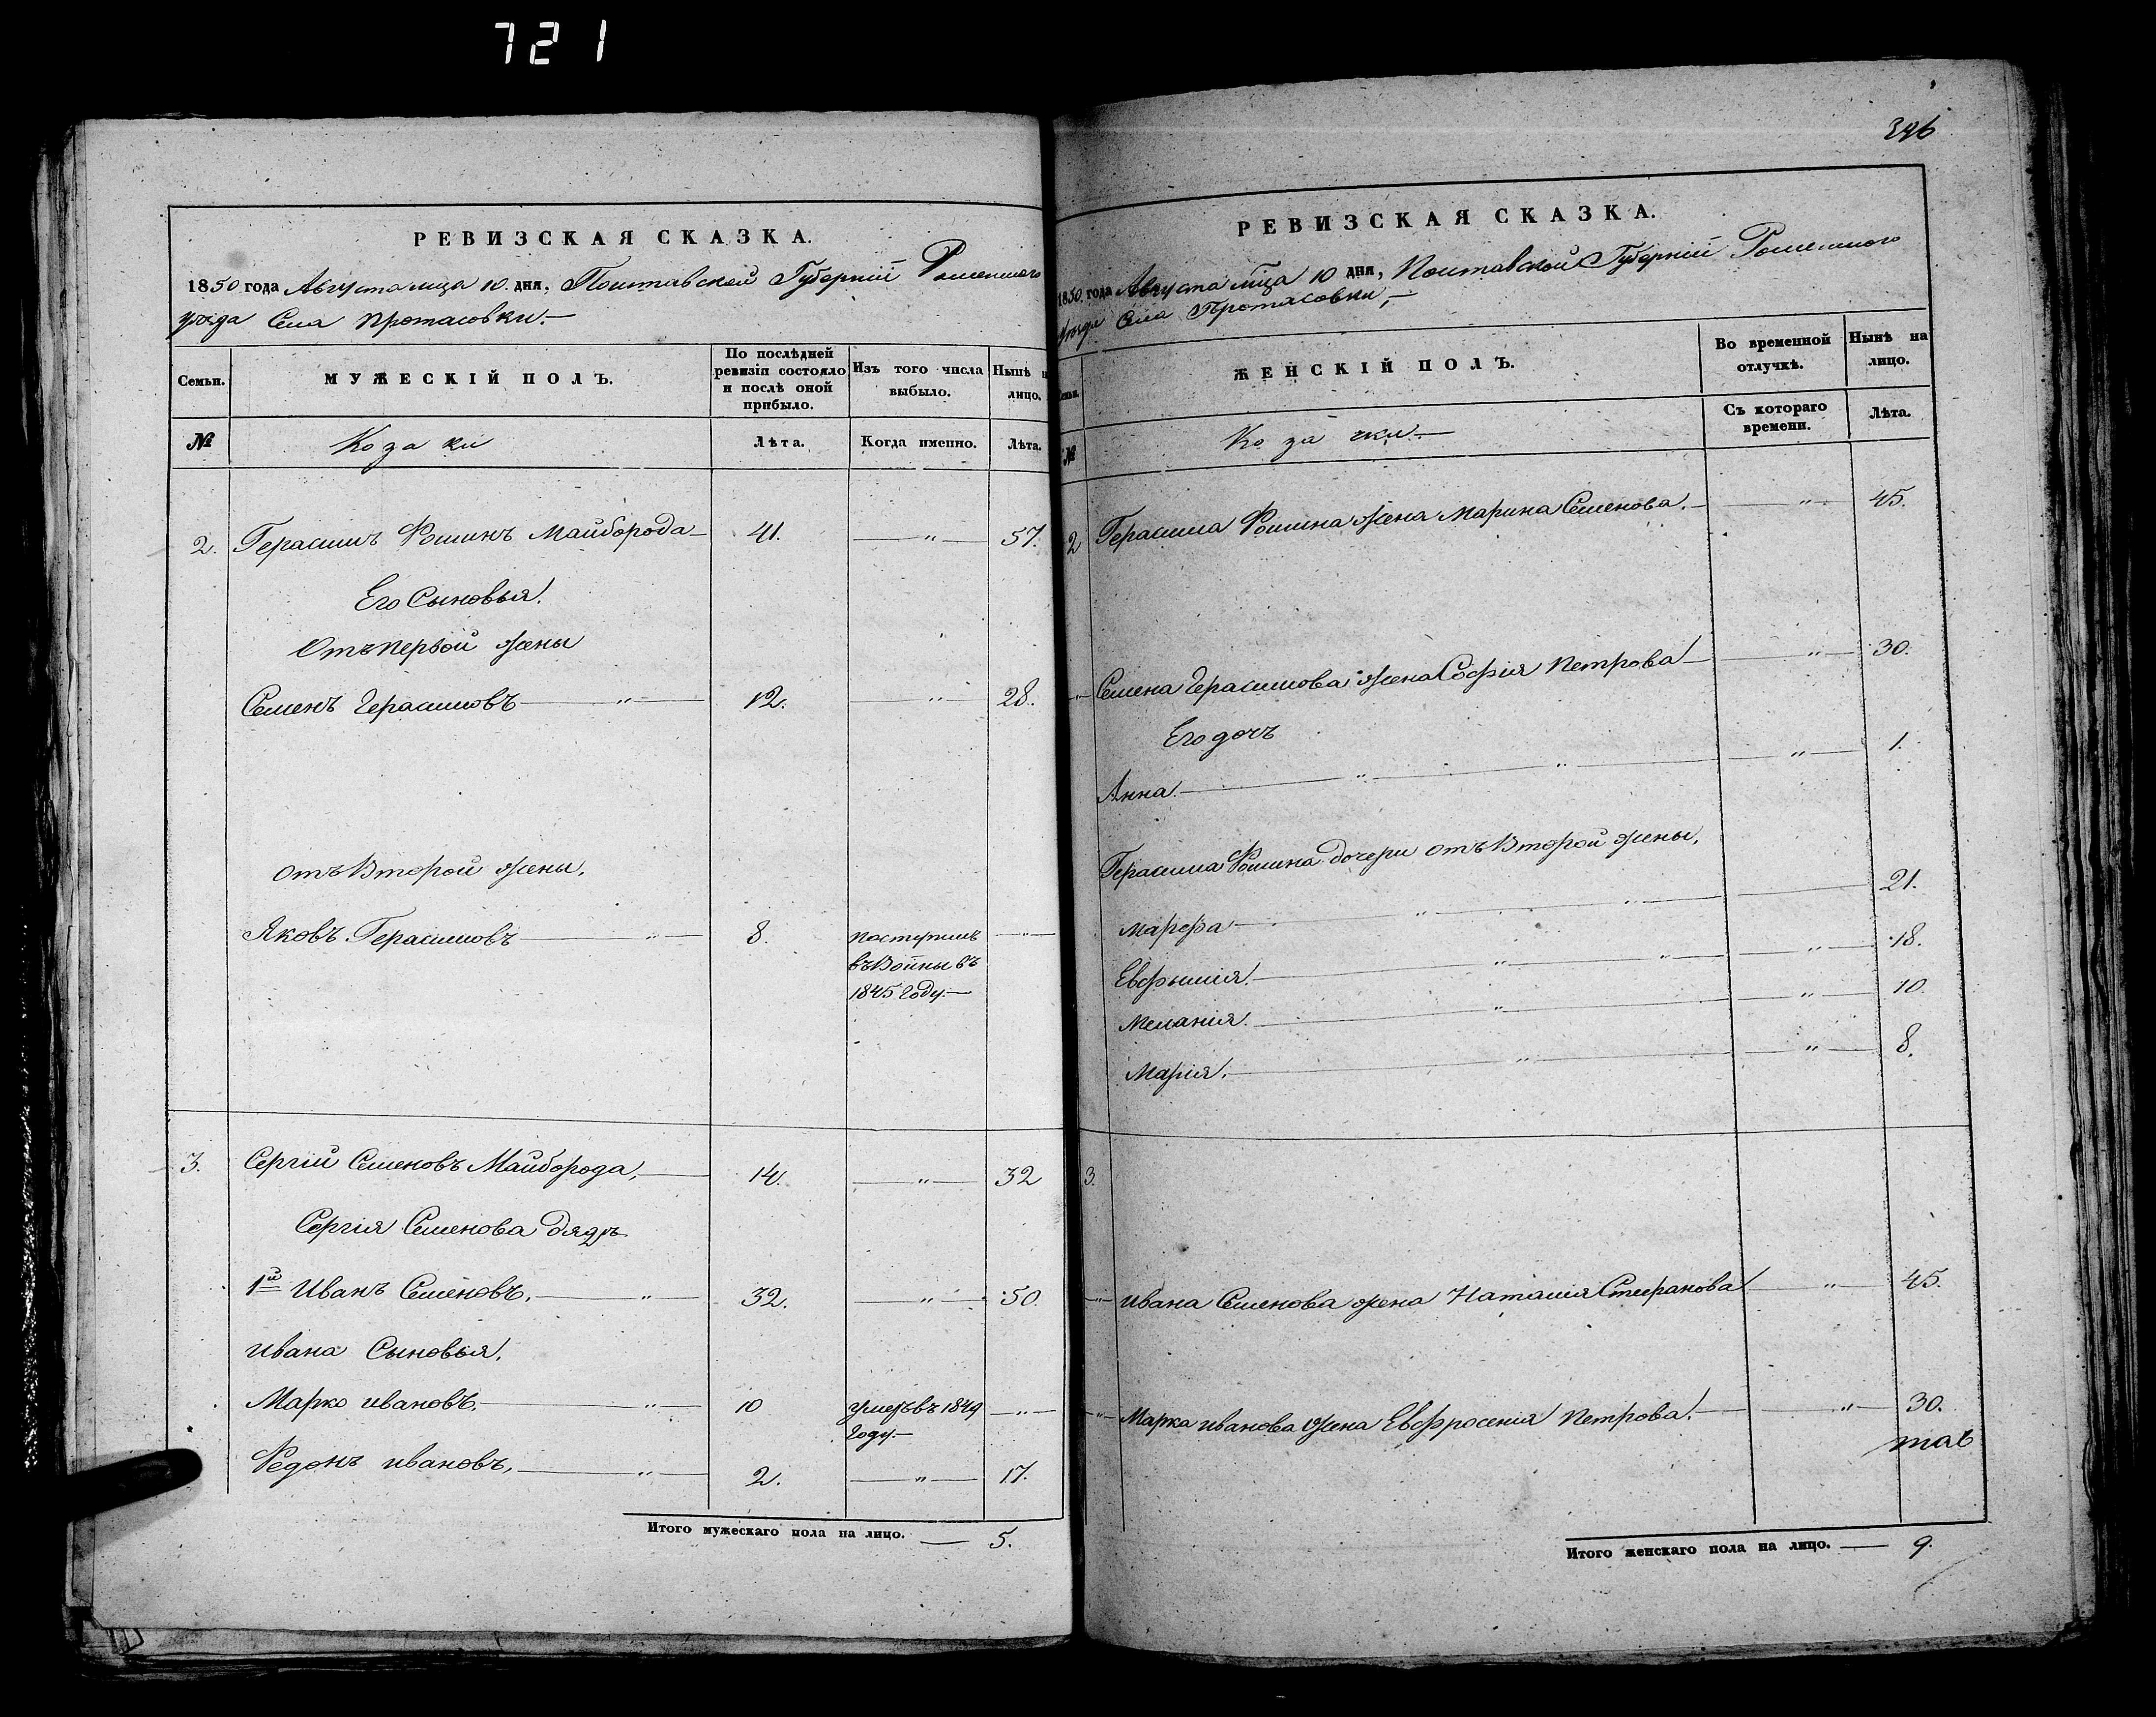 721
РЕВИЗСКАЯ СКАЗКА.
1850 года Августа мца 10 дня, Полтавской Губерніи Роменского
уезда Села Протасовки.—
Семьи.
МУЖЕСКІЙ ПОЛЪ.
По послѣдней ревизіи состояло и послѣ оной прибыло.
Изъ того числа выбыло.
Нынѣ на лицо.
№
Козаки
Лѣта.
Когда именно.
Лѣта.
2. Герасимъ Фоминъ Майборода — 41. — " — 57.
Его Сыновья.
Отъ первой жены
Семенъ Герасимовъ — " — 12. — " — 28.
отъ Второй жены.
Яковъ Герасимовъ — " — 8. поступилъ — " —
въ Воины въ
1845 году.—
3. Сергій Семеновъ Майборода, — 14. — " — 32
Сергія Семенова дядѣ
1й Иванъ Семеновъ. — " — 32. — " — 50.
Ивана Сыновья.
Марко ивановъ. — " — 10 умеръ въ 1849 — " —
году.—
Федонъ ивановъ, — " — 2. — " — 17.
Итого мужескаго пола на лицо. — 5.
396
РЕВИЗСКАЯ СКАЗКА.
1850 года Августа мца 10 дня, Полтавской Губерніи Роменского
уезда Села Протасовки,—
Семьи.
ЖЕНСКІЙ ПОЛЪ.
Во временной отлучкѣ.
Нынѣ на лицо.
№
Козачки.—
Съ котораго времени.
Лѣта.
2 Герасима Фомина жена Марина Семенова. — " — 45.
" Семена Герасимова жена Софія Петрова — " — 30.
Его дочь
Анна. — " — " — " — 1.
Герасима Фомина дочери отъ Второй жены.
Марфа — " — " — 21.
Евфимія. — " — " — " — 18.
Меланія. — " — " — 10.
Марія. — " — " — 8.
3.
" Ивана Семенова жена Наталія Стефанова — " — 45.
" Марка иванова жена Евфросенія Петрова. — " — 30.
Итого женскаго пола на лицо. — 9.